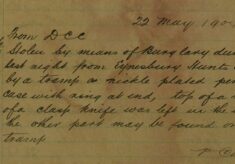 22 May 190
From DCC
Stolen by means of Burglary du
last night from Eynesbury Hunts
by a tramp a nickle plated pen
case with ring at end, top of a
of a clasp knife was left in the
the other part may be found on
tramp